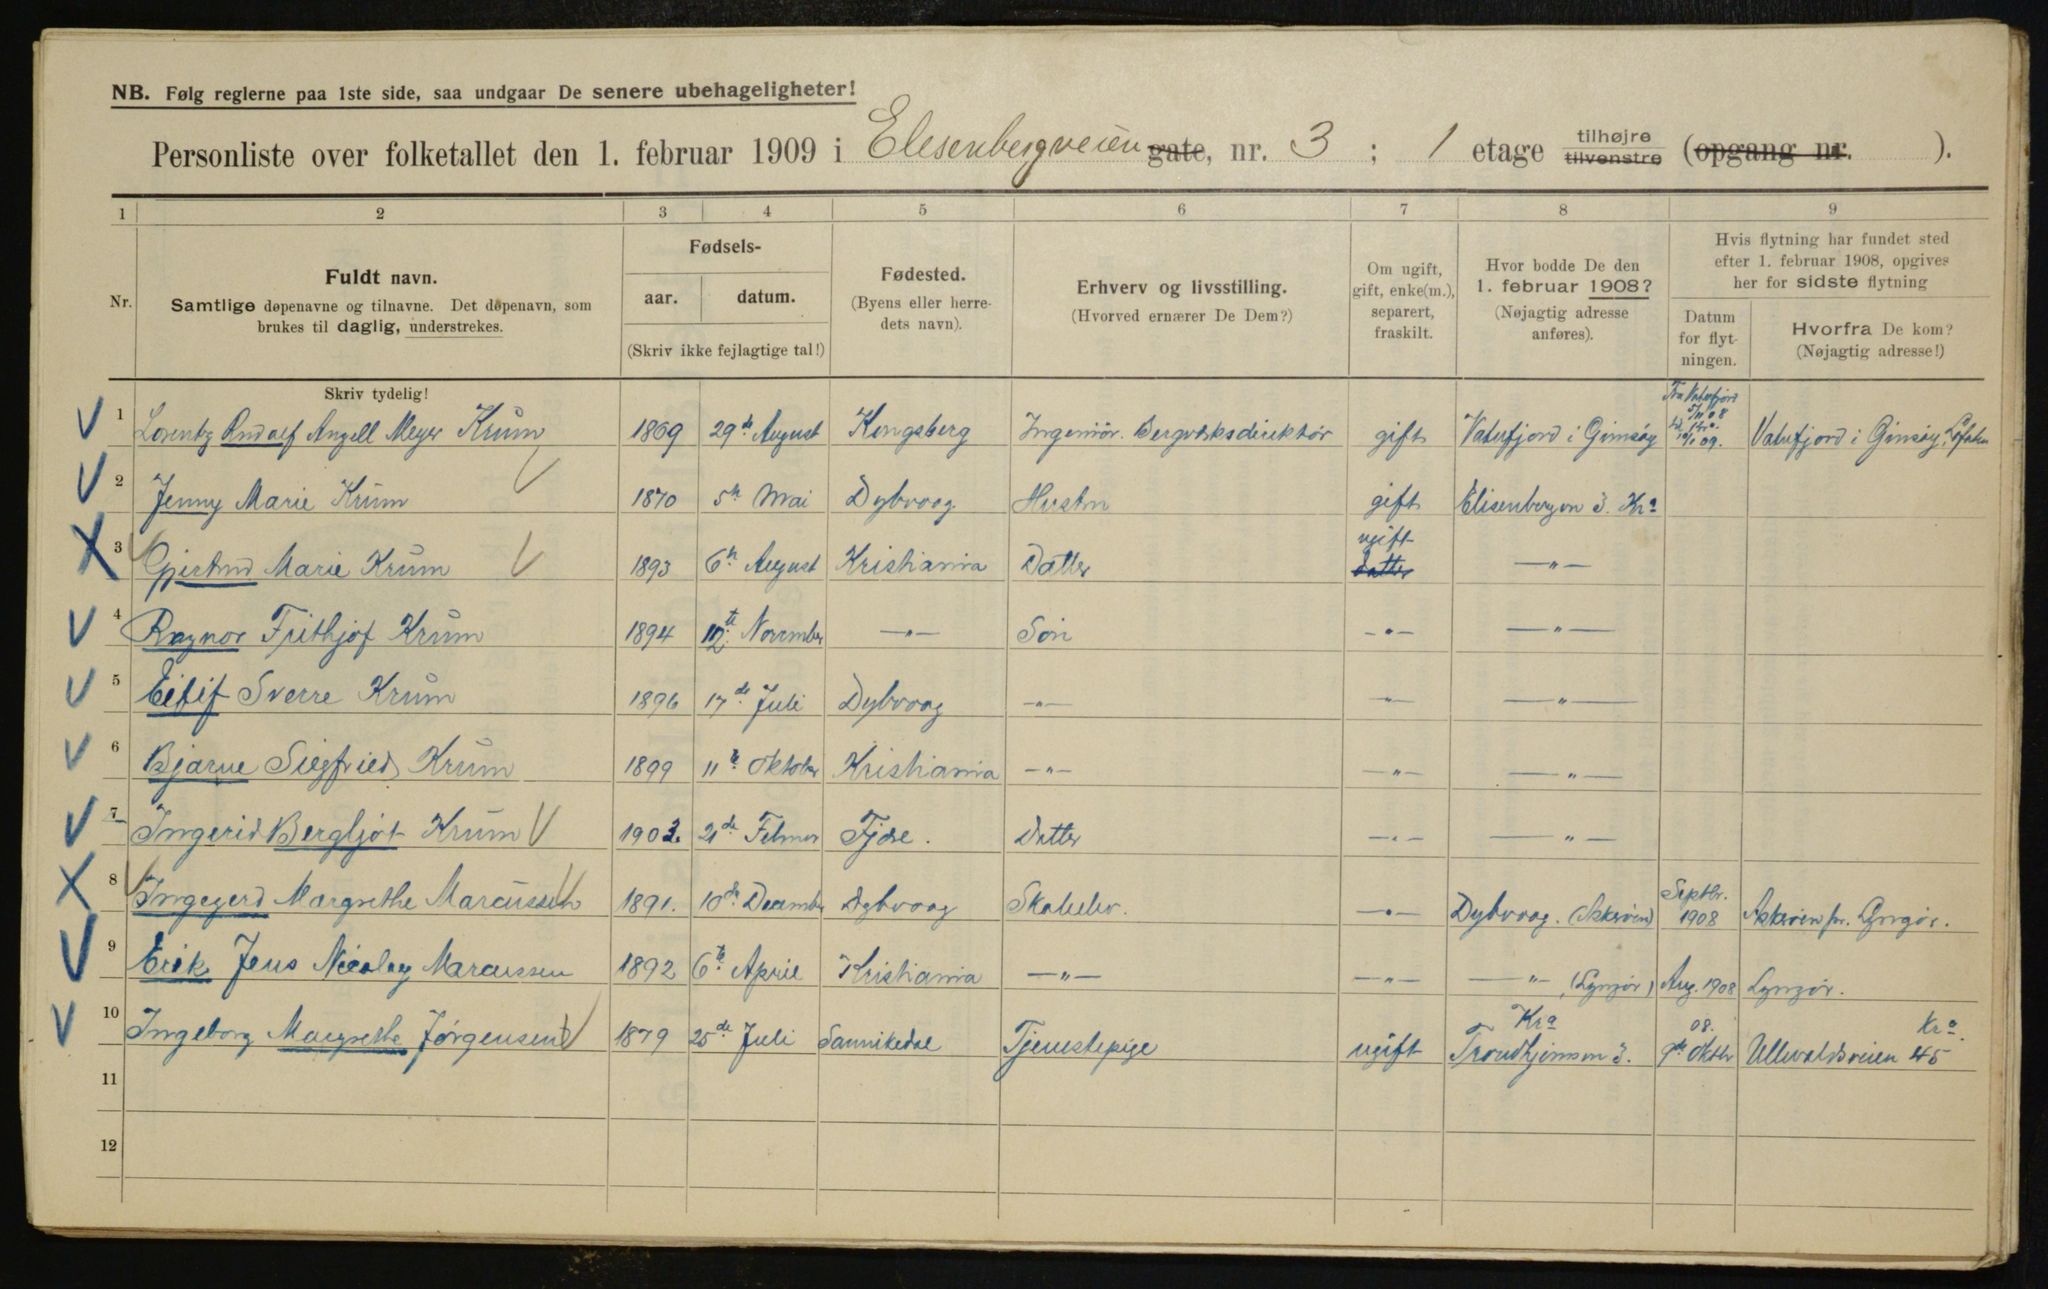 NB. Følg reglerne paa 1ste side, saa undgaar De senere ubehageligheter!
Personliste over folketallet den 1. februar 1909 i Elesenbergveien gate, nr. 3 ; 1 etage tilhøjre tilvenstre (opgang nr. ).
1 2 3 4 5 6 7 8 9
Nr.
Fuldt navn.
Samtlige døpenavne og tilnavne. Det døpenavn, som
brukes til daglig, understrekes.
Fødsels-
aar. datum.
(Skriv ikke fejlagtige tal!)
Fødested.
(Byens eller herre-
dets navn).
Erhverv og livsstilling.
(Hvorved ernærer De Dem?)
Om ugift,
gift, enke(m.),
separert,
fraskilt.
Hvor bodde De den
1. februar 1908?
(Nøjagtig adresse
anføres).
Hvis flytning har fundet sted
efter 1. februar 1908, opgives
her for sidste flytning
Datum
for flyt-
ningen.
Hvorfra De kom?
(Nøjagtig adresse!)
Skriv tydelig!
1 Lorentz Rudolf Angell Meyer Krum 1869 29de August Kongsberg Ingeniør. Bergværksdirektør gift Vaterfjord i Gimsøy Fra Vaterfjord 5/11 08 10/1 09. Vaterfjord i Gimsøy, Lofoten
2 Jenny Marie Krum 1870 5te Mai Dybvaag Hustru gift Elisenbergvn 3. Kra
3 Gjertrud Marie Krum 1893 6te August Kristiania Datter ugift datter —"—
4 Ragnar Frithjof Krum 1894 12te November —"— Søn —"— —"—
5 Eilif Sverre Krum 1896 17de Juli Dybvaag —"— —"— —"—
6 Bjarne Siegfried Krum 1899 11te Oktober Kristiania —"— —"— —"—
7 Ingerid Bergljot Krum 1903 21de Februar Tjøse. Datter —"— —"—
8 Ingegerd Margrethe Marcussen 1891. 10de December Dybvaag Skoleelev. —"— Dybvaag. (Askerøen) Septbr. 1908 Askerøen pr. Lyngør.
9 Erik Jens Nicolay Marcussen 1892 6te April Kristiania —"— —"— —"— (Lyngør) Aug. 1908 Lyngør.
10 Ingeborg Margrethe Jørgensen 1879 25de Juli Sannikedal Tjenestepige ugift Kra Trondhjemsvn 3. 08. 9de Oktbr Ullevaldsveien 45 Kra.
11
12